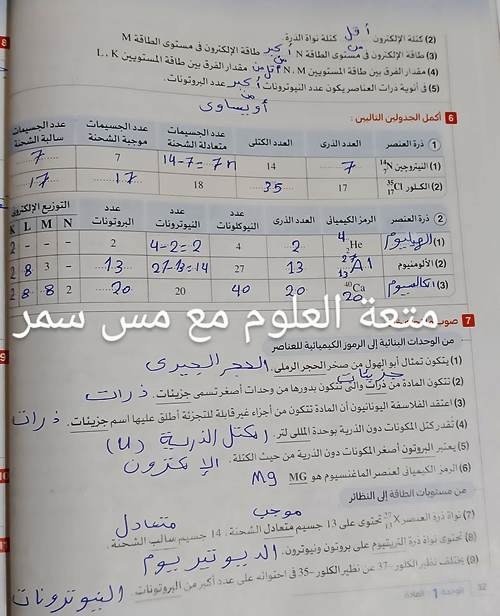 (2) كتلة الإلكترون أقل كتلة نواة الذرة.
(3) طاقة الإلكترون فى مستوى الطاقة N أكبر من طاقة الإلكترون فى مستوى الطاقة M
(4) مقدار الفرق بين طاقة المستويين N ، M أقل من مقدار الفرق بين طاقة المستويين L ، K
(5) فى أنوية ذرات العناصر يكون عدد النيوترونات أكبر من عدد البروتونات.
أو يساوى
6 أكمل الجدولين التاليين :
1 ذرة العنصر العدد الذرى العدد الكتلى عدد الجسيمات متعادلة الشحنة عدد الجسيمات موجبة الشحنة عدد الجسيمات سالبة الشحنة
(1) النيتروجين 14 7 N 7 14 14-7=7n 7 7
(2) الكلور 35 17 Cl 17 35 18 17 17
2 ذرة العنصر الرمز الكيميائى العدد الذرى عدد النيوكلونات عدد النيوترونات عدد البروتونات التوزيع الإلكترونى K L M N
(1) الهيليوم 4 2 He 2 4 4-2=2 2 2 - - -
(2) الألومنيوم 27 13 Al 13 27 27-13=14 13 2 8 3 -
(3) الكالسيوم 40 20 Ca 20 40 20 20 2 8 8 2
متعة العلوم مع مس سمر
7 صوب
من الوحدات البنائية إلى الرموز الكيميائية للعناصر
(1) يتكون تمثال أبو الهول من صخر الحجر الرملى. الحجر الجيرى
جزيئات
(2) تتكون المادة من ذرات والتى تتكون بدورها من وحدات أصغر تسمى جزيئات. ذرات
(3) اعتقد الفلاسفة اليونانيون أن المادة تتكون من أجزاء غير قابلة للتجزئة أطلق عليها اسم جزيئات. ذرات
(4) تُقدر كتل المكونات دون الذرية بوحدة المللى لتر. الكتل الذرية (u)
(5) يعتبر البروتون أصغر المكونات دون الذرية من حيث الكتلة. الإلكترون
(6) الرمز الكيميائى لعنصر الماغنسيوم هو MG Mg
من مستويات الطاقة إلى النظائر
موجب
متعادل
(7) نواة ذرة العنصر 27 13 X تحتوى على 13 جسيم متعادل الشحنة، 14 جسيم سالب الشحنة.
(8) تحتوى نواة ذرة التريتيوم على بروتون ونيوترون. الديوتيريوم
(9) يختلف نظير الكلور-37 عن نظير الكلور-35 فى احتوائه على عدد أكبر من البروتونات. النيوترونات
32 الوحدة 1 المادة